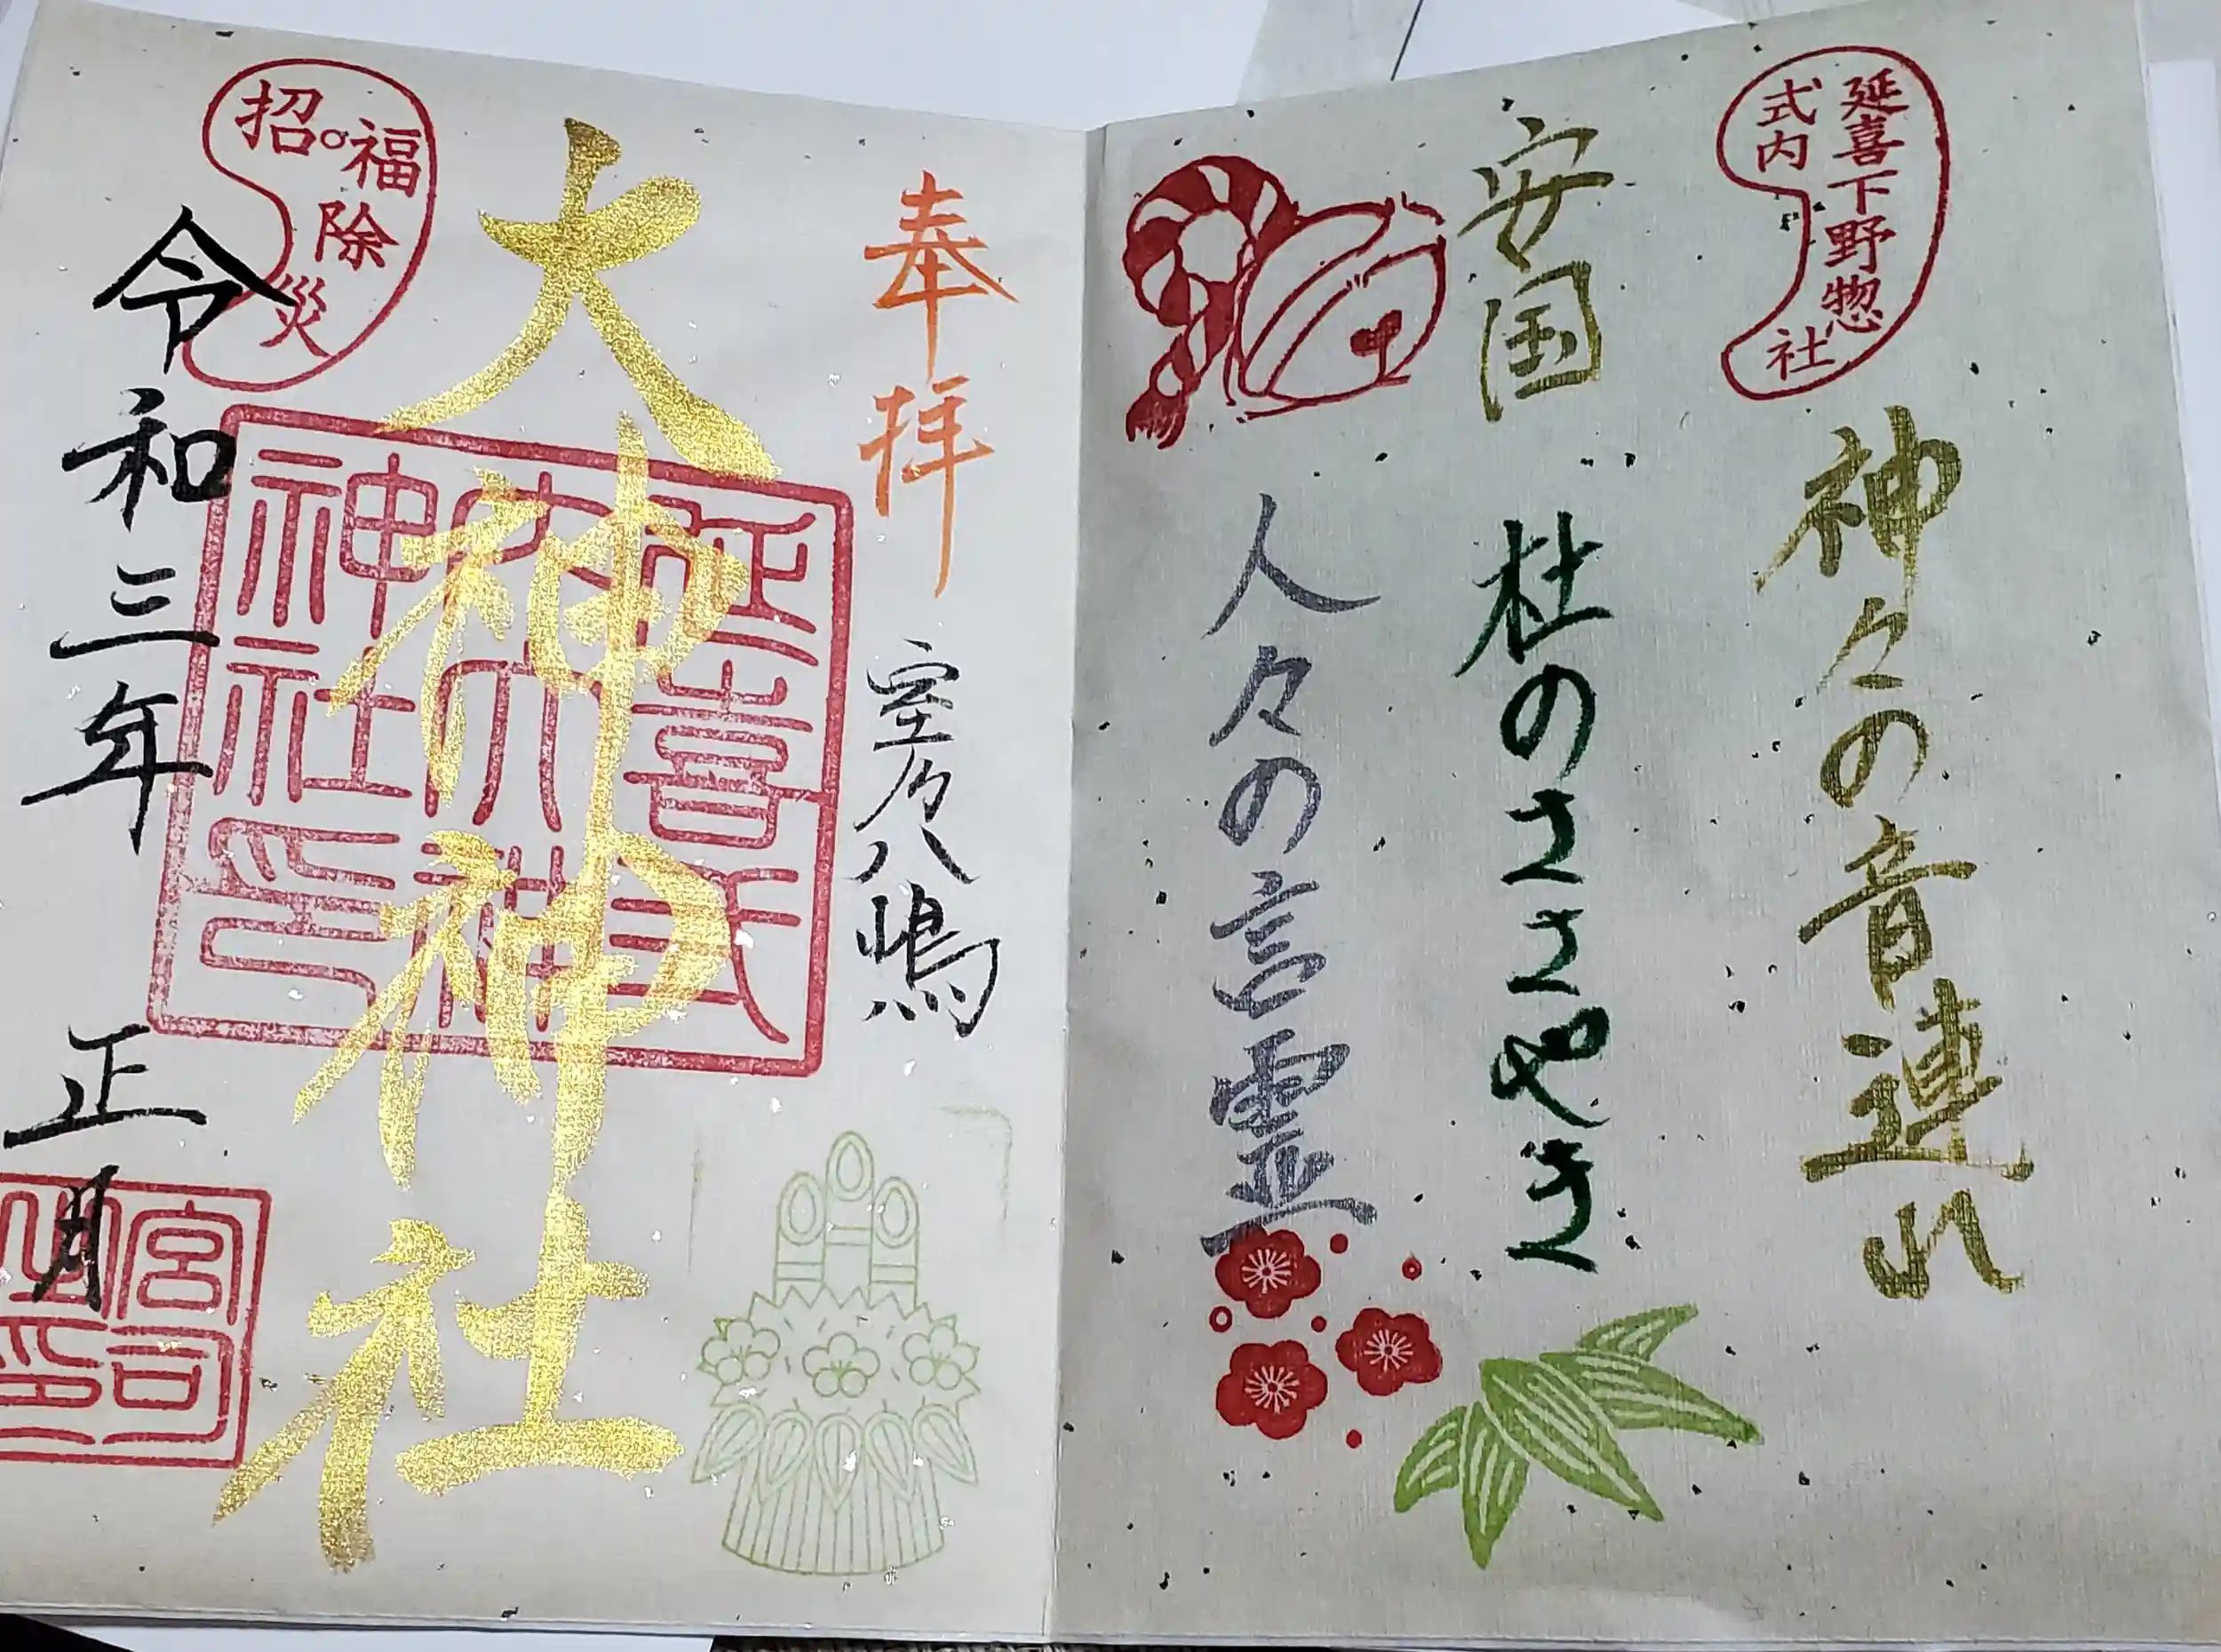 延喜下野惣社
式内
神々の音連れ
安国
杜のささやき
人々の言霊
奉拝
室乃八嶋
大神神社
延喜式
内大神
神社印
招福除災
令和三年 正月
宮司
之印